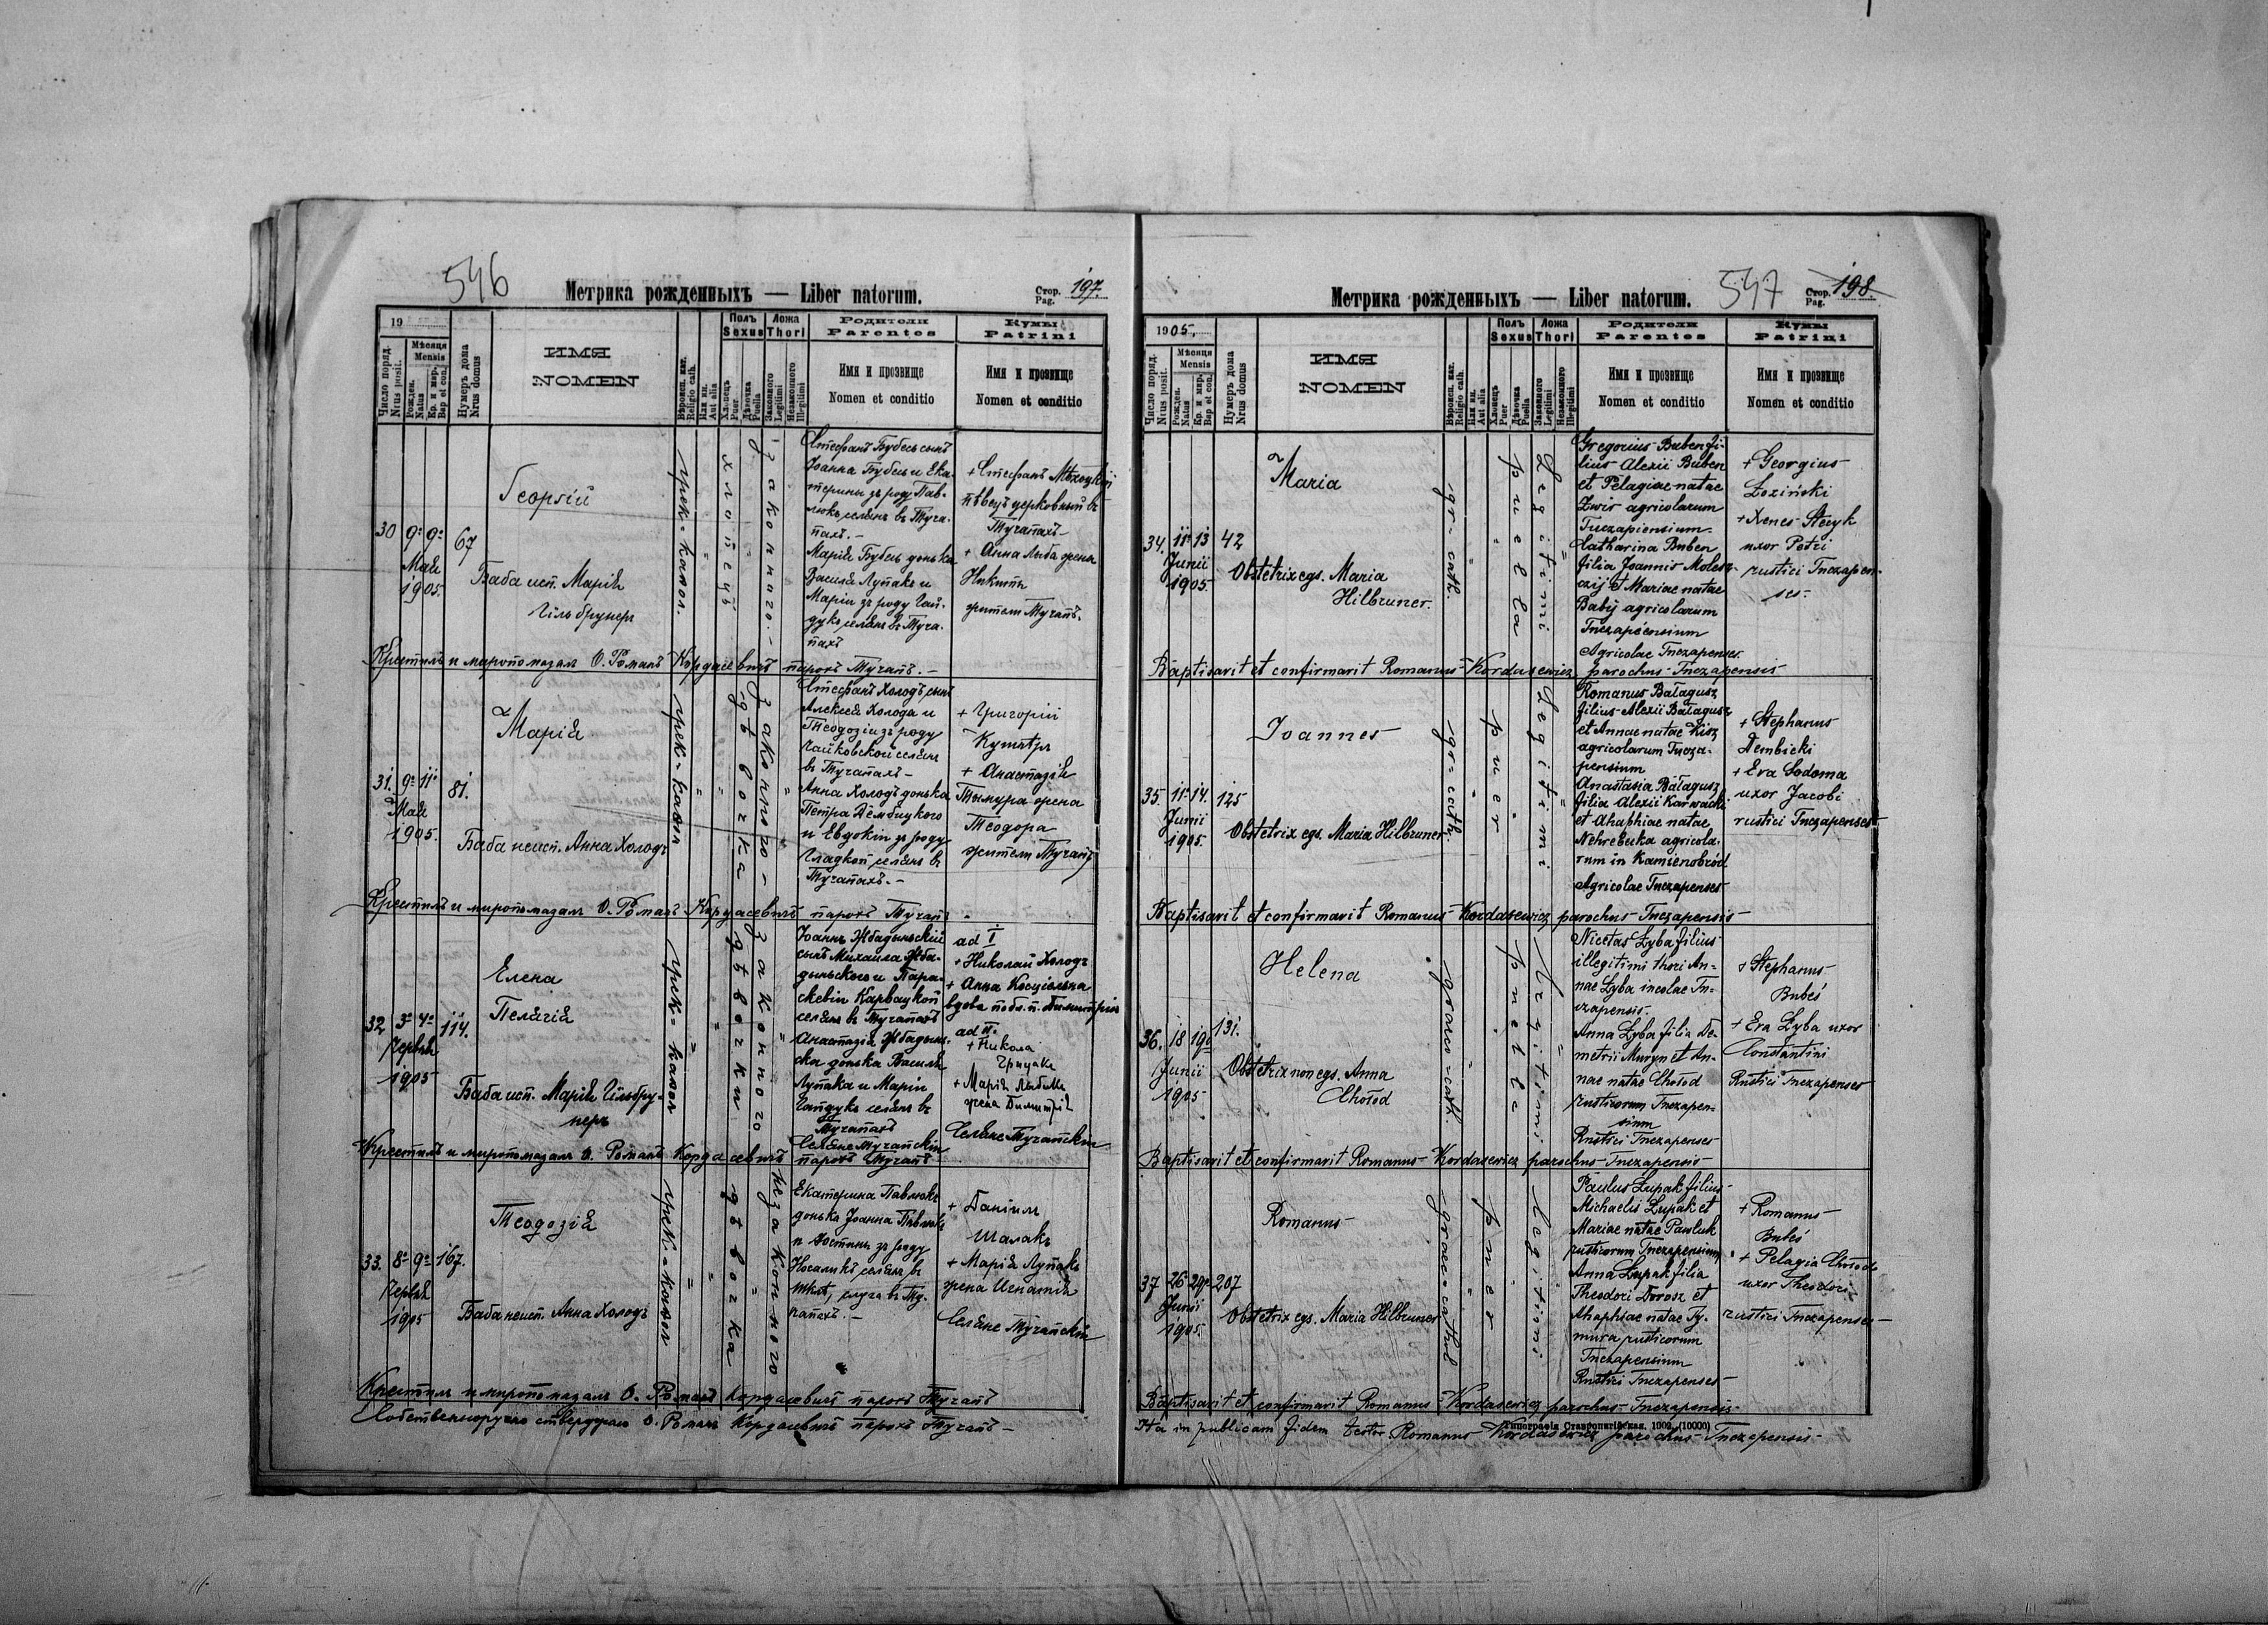 546
Метрика рожденныхъ — Liber natorum.
Стор. Pag. 197.
19
Число поряд. Nrus posit.
Мѣсяця Mensis
Рожден. Natus
Кр. и мир. Bap et con.
Нумеръ дома Nrus domus
ИМЯ
NOMEN
Вѣроисп. кат. Religio cath.
Или ин. Aut alia
Полъ Sexus
Хлопецъ Puer
Дѣвочка Puella
Ложа Thori
Законного Legitimi
Незаконного Illegitimi
Родители
Parentes
Имя и прозвище
Nomen et conditio
Кумы
Patrini
Имя и прозвище
Nomen et conditio
30 9. 9. 67
Мая
1905.
Георгій
Баба исп. Марія
Гільбрунеръ
грек=катол.
хлопецъ
законного.-
Стефанъ Бубесь сынъ
Іоанна Бубесь и Ека-
терины зъ роду Пав-
люкъ, селянъ въ Туча-
пахъ.-
Марія Бубесь донька
Василія Лупакъ и
Маріи зъ роду Гай-
дукъ, селянъ въ Туча-
пахъ
+ Стефанъ
пѣвецъ церковный въ
Тучапахъ-
+ Анна Лыба жена
Никиты
жители Тучапъ.
Крестилъ и миропомазалъ О. Романъ Кордасевичъ парохъ Тучапъ.-
31. 9. 11. 81.
Мая
1905.
Марія
Баба неисп. Анна Холодъ
грек=катол
дѣвочка
законного -
Стефанъ Холодъ, сынъ
Алексія Холода и
Теодозіи зъ роду
Чайковской селянъ
въ Тучапахъ-
Анна Холодъ донька
Петра Дембицкого
и Евдокіи зъ роду
Гладкой, селянъ въ
Тучапахъ.-
+ Григорій
+ Анастазія
Тымура жена
Теодора
жители Тучапъ
Крестилъ и миропомазалъ О. Романъ Кордасевичъ парохъ Тучапъ.
32 3. 4. 114.
Червня
1905
Елена
Пелягія
Баба исп. Марія Гільбру-
неръ
грек=катол
дѣвочки
законного
Іоаннъ Жбадыньскій
сынъ Михаила Жба-
дыньского и Пара-
скевіи Карвацкой
селянъ въ Тучапахъ
Анастазія Жбадынь-
ска донька Василія
Лупака и Маріи
Гайдукъ селянъ въ
Тучапахъ
Селяне Тучапскіи
ad I
+ Николай Холодъ
+ Анна
вдова по бл. п. Димитріи
ad II.
+ Никола
Грицакъ
+ Марія
жена Димитрія
Селяне Тучапскіи
Крестилъ и миропомазалъ О. Романъ Кордасевичъ парохъ Тучапъ
33. 8. 9. 167.
Червня
1905
Теодозія
Баба неисп. Анна Холодъ
грек=катол
дѣвочка
незаконного
Екатерина Павлюкъ
донька Іоанна Павлюкъ
и Юстины зъ роду
селянъ въ
слуга въ Ту-
чапахъ.-
+ Даніилъ
Шалакъ
+ Марія Лупакъ
жена Игнатія
Селяне Тучапскіи
Крестилъ и миропомазалъ О. Романъ Кордасевичъ парохъ Тучапъ
Собственноручно ствержаю О. Романъ Кордасевичъ парохъ Тучапъ -
547
Метрика рожденныхъ — Liber natorum.
Стор. Pag. 198.
1905.
Число поряд. Nrus posit.
Мѣсяця Mensis
Рожден. Natus
Кр. и мир. Bap et con.
Нумеръ дома Nrus domus
ИМЯ
NOMEN
Вѣроисп. кат. Religio cath.
Или ин. Aut alia
Полъ Sexus
Хлопецъ Puer
Дѣвочка Puella
Ложа Thori
Законного Legitimi
Незаконного Illegitimi
Родители
Parentes
Имя и прозвище
Nomen et conditio
Кумы
Patrini
Имя и прозвище
Nomen et conditio
34. 11. 13 42
Junii
1905.
Maria
Obstetrix egs. Maria
Hilbruner.
gr=cath.
puella
Legitimi
Gregorius Buben fi-
lius Alexii Buben
et Pelagiae natae
Zwir agricolarum
Tuczapiensium-
Catharina Buben
filia Joannis Molesz-
czij et Mariae natae
Babij agricolarum
Tuczapiensium
Agricolae Tuczapenses.
+ Georgius
Łoziński
+ Xenes Stecyk
uxor Petri
rustici Tuczapen-
ses-
Baptisavit et confirmavit Romanus Kordasewicz parochus Tuczapensis
35. 11. 14. 125
Junii
1905.
Joannes
Obstetrix egs. Maria Hilbruner
gr=cath.
puer
Legitimi
Romanus Bałagusz
filius Alexii Bałagusz
et Annae natae Kisz
agricolarum Tucza-
pensium
Anastasia Bałagusz
filia Alexii Karwacki
et Ahaphiae natae
Nehrebecka agricola-
rum in Kamienobród
Agricolae Tuczapenses
+ Stephanus
Dembicki
+ Eva Sodoma
uxor Jacobi
rustici Tuczapenses
Baptisavit et confirmavit Romanus Kordasewicz parochus Tuczapensis-
36. 18 19. 131.
Junii
1905
Helena
Obstetrix non egs. Anna
Chołod
graeco=cath.
puella
Legitimi
Nicetas Łyba filius
illegitimi thori An-
nae Łyba incolae Tu-
czapensis.
Anna Łyba filia De-
metrii Muryn et An-
nae natae Chołod
rusticorum Tuczapen-
sium
Rustici Tuczapenses
+ Stephanus
Bubeś
+ Eva Łyba uxor
Constantini
Rustici Tuczapenses
Baptisavit et confirmavit Romanus Kordasewicz parochus Tuczapensis
37 26 29. 207
Junii
1905.
Romanus
Obstetrix egs. Maria Hilbruner
graec=cathol
puer
Legitimi
Paulus Łupak filius
Michaelis Łupak et
Mariae natae Pawluk
rusticorum Tuczapensium
Anna Łupak filia
Theodori Dorosz et
Ahaphiae natae Ty-
mura rusticorum
Tuczapensium
Rustici Tuczapenses-
+ Romanus
Bubeś
+ Pelagia Chołod
uxor Theodori
rustici Tuczapenses-
Baptisavit et confirmavit Romanus Kordasewicz parochus Tuczapensis-
Типографія Ставропигійская. 1902. (10000)
Ita in publicam fidem testor Romanus Kordasewicz parochus Tuczapensis-